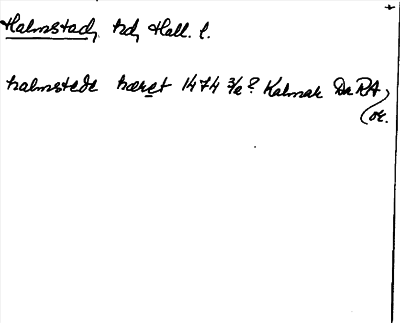 Halmstad, hd, Hall. l.
halmstede hæret 1474 3/2? Kalmar Da RA,
or.